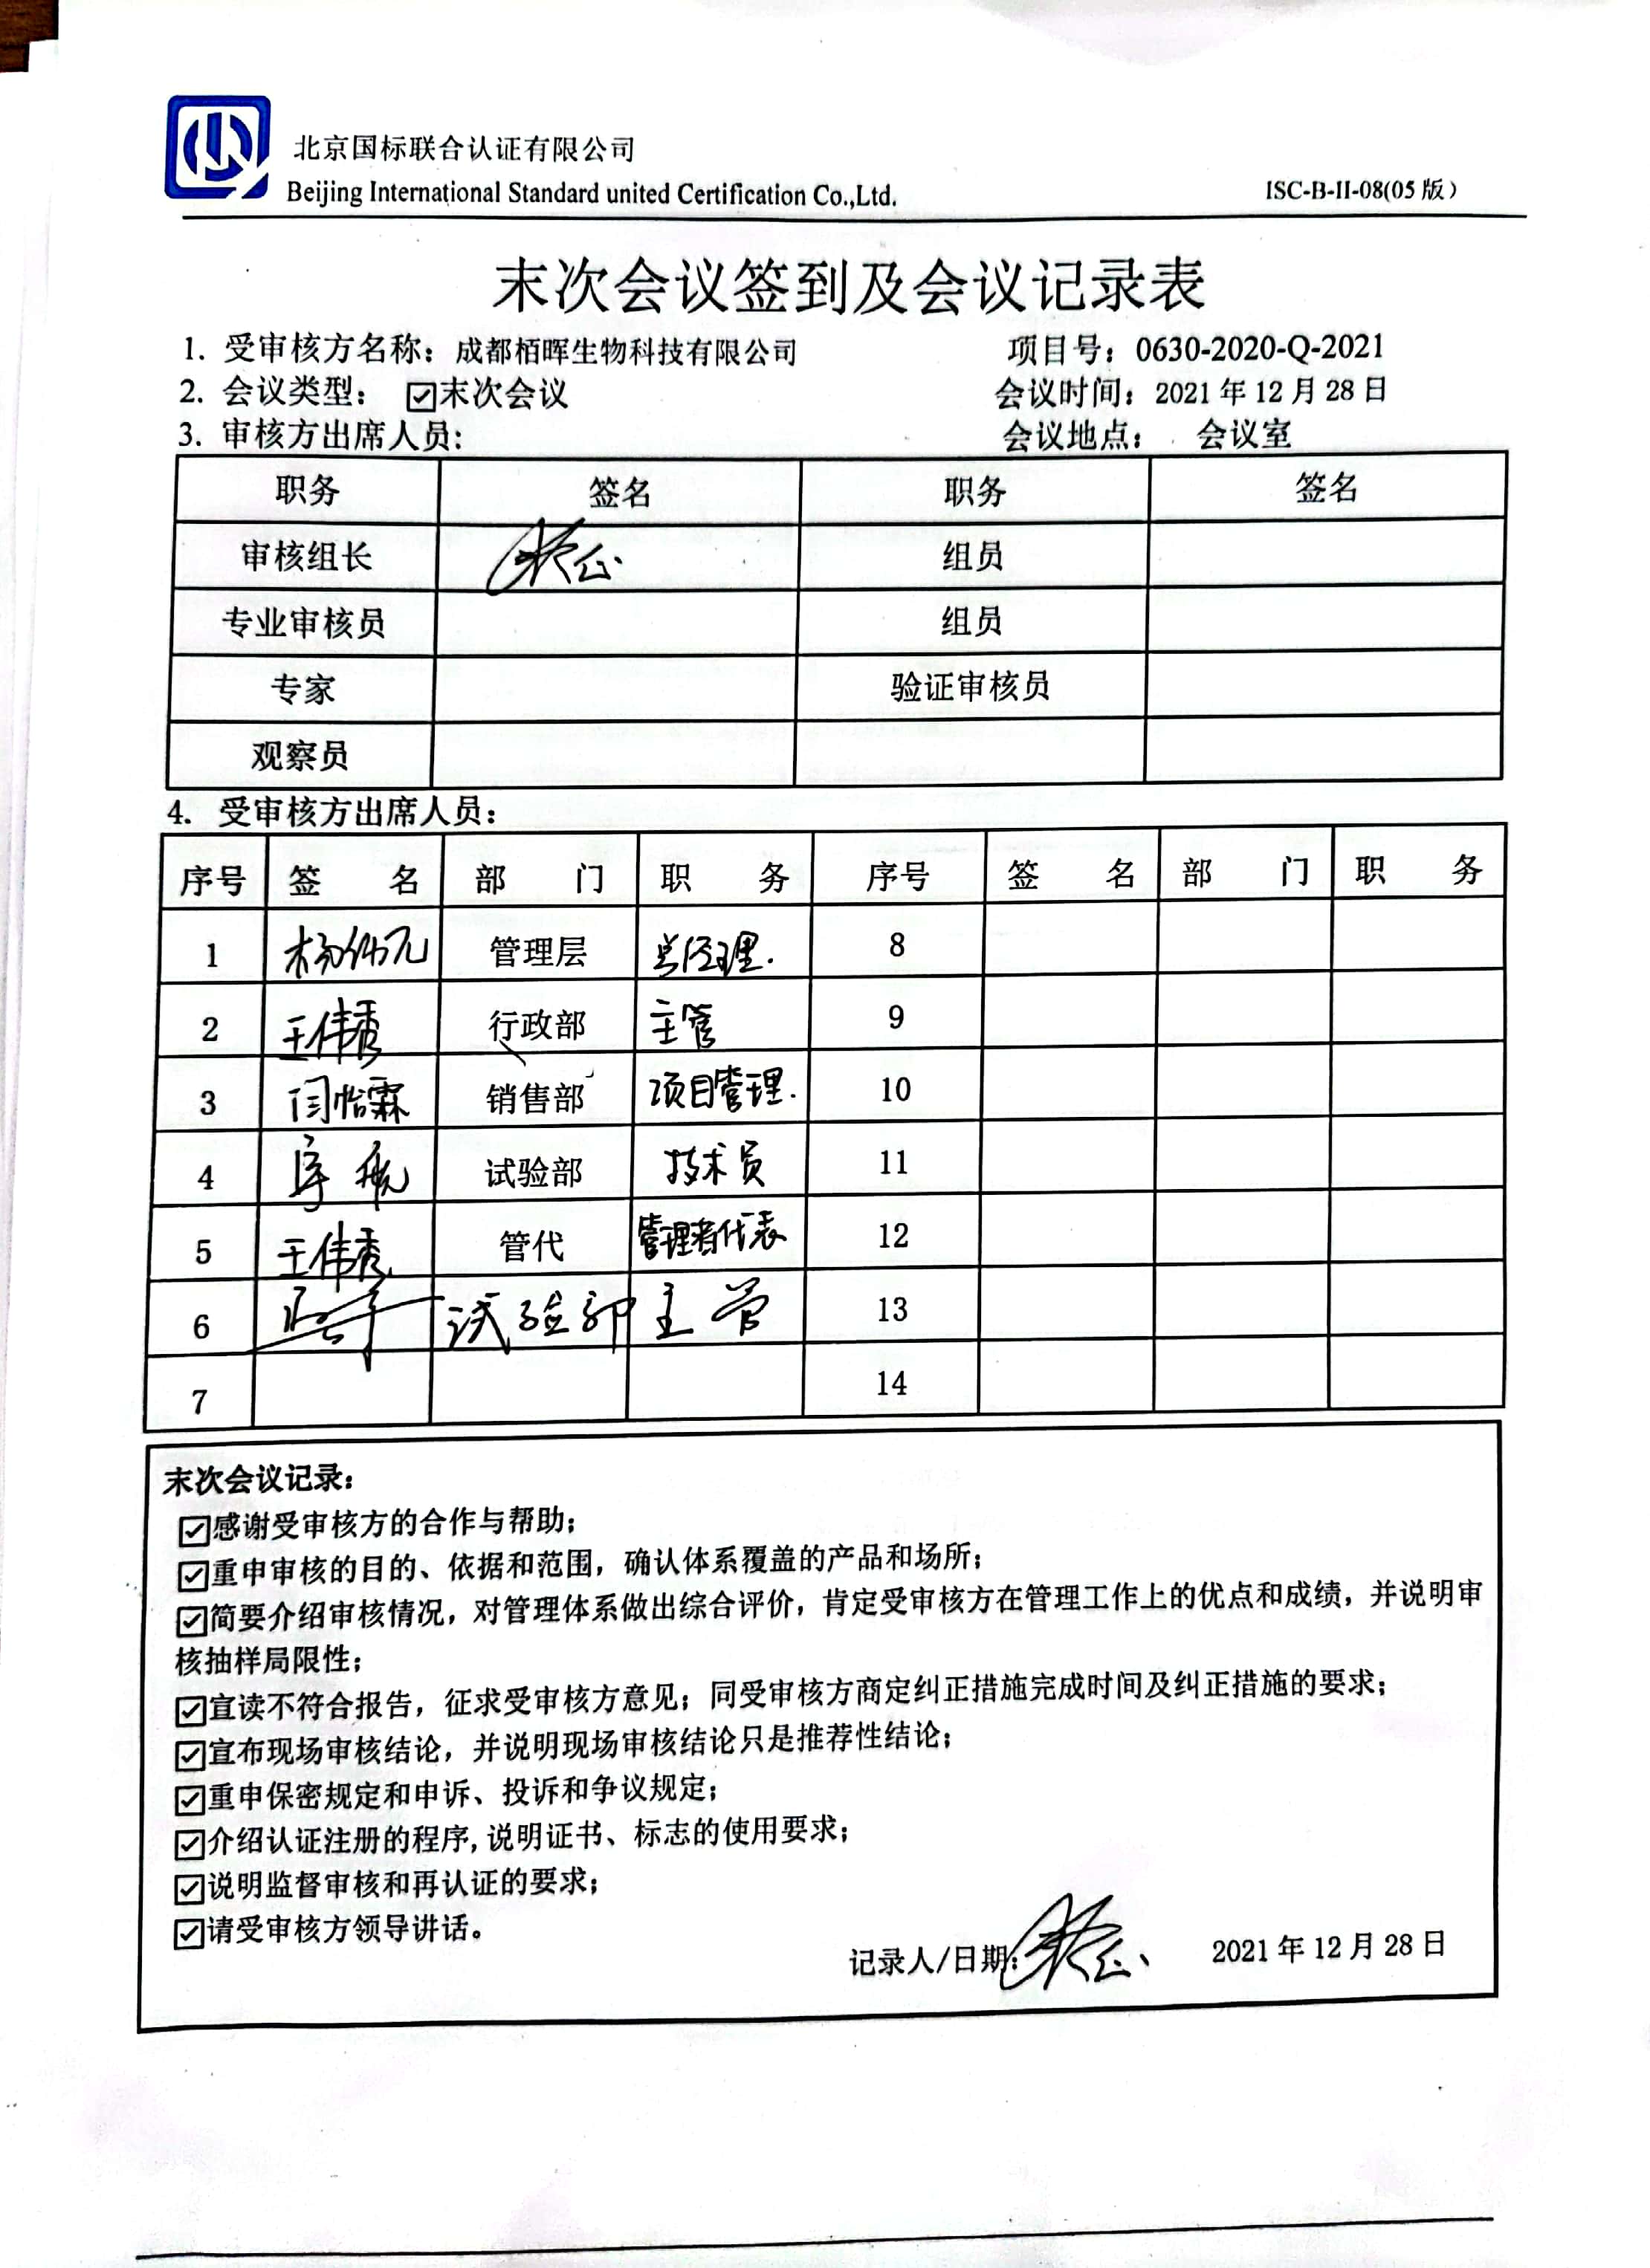 北京国标联合认证有限公司
Beijing International Standard united Certification Co.,Ltd.
ISC-B-II-08(05版)
末次会议签到及会议记录表
1. 受审核方名称：成都栢晖生物科技有限公司 项目号：0630-2020-Q-2021
2. 会议类型： ☑末次会议 会议时间：2021年12月28日
3. 审核方出席人员: 会议地点： 会议室
职务 签名 职务 签名
审核组长 组员
专业审核员 组员
专家 验证审核员
观察员
4. 受审核方出席人员：
序号 签 名 部 门 职 务 序号 签 名 部 门 职 务
1 管理层 总经理. 8
2 王伟秀 行政部 主管 9
3 闫怡霖 销售部 项目管理. 10
4 试验部 技术员 11
5 王伟秀 管代 管理者代表 12
6 试验部 主管 13
7 14
末次会议记录：
☑感谢受审核方的合作与帮助；
☑重申审核的目的、依据和范围，确认体系覆盖的产品和场所；
☑简要介绍审核情况，对管理体系做出综合评价，肯定受审核方在管理工作上的优点和成绩，并说明审
核抽样局限性；
☑宣读不符合报告，征求受审核方意见；同受审核方商定纠正措施完成时间及纠正措施的要求；
☑宣布现场审核结论，并说明现场审核结论只是推荐性结论；
☑重申保密规定和申诉、投诉和争议规定；
☑介绍认证注册的程序,说明证书、标志的使用要求；
☑说明监督审核和再认证的要求；
☑请受审核方领导讲话。
记录人/日期: 2021年12月28日